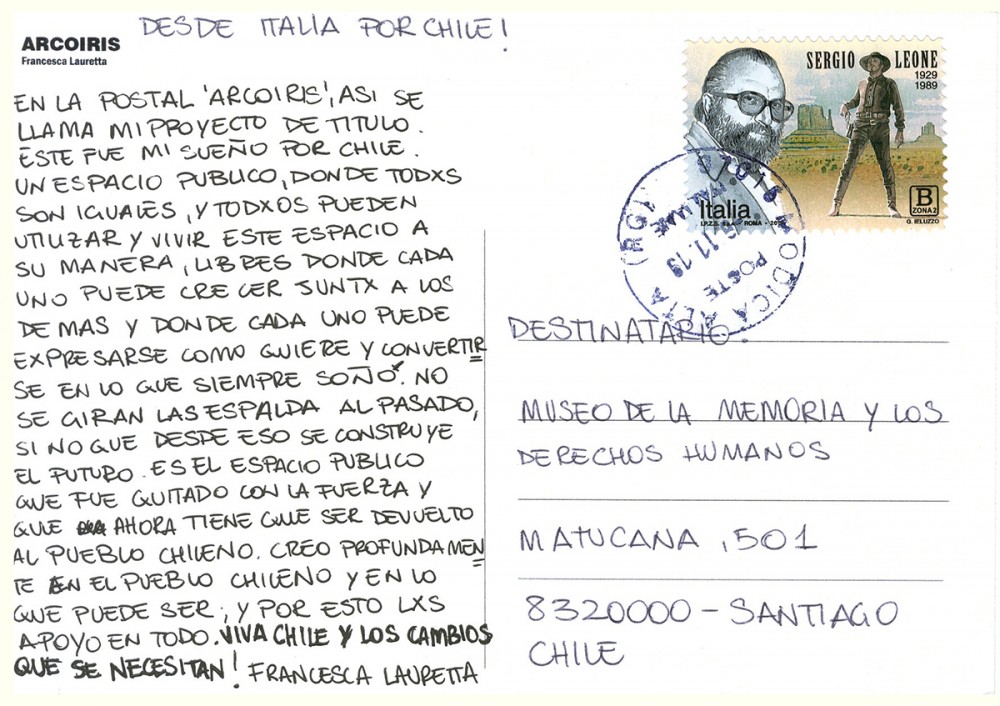 DESDE ITALIA POR CHILE!
ARCOIRIS
Francesca Lauretta
EN LA POSTAL 'ARCOIRIS', ASI SE
LLAMA MI PROYECTO DE TITULO.
ESTE FUE MI SUEÑO POR CHILE.
UN ESPACIO PUBLICO, DONDE TODXS
SON IGUALES, Y TODXOS PUEDEN
UTILIZAR Y VIVIR ESTE ESPACIO A
SU MANERA, LIBRES DONDE CADA
UNO PUEDE CRECER JUNTX A LOS
DE MAS Y DONDE CADA UNO PUEDE
EXPRESARSE COMO QUIERE Y CONVERTIR
SE EN LO QUE SIEMPRE SOÑO. NO
SE GIRAN LAS ESPALDA AL PASADO,
SI NO QUE DESDE ESO SE CONSTRUYE
EL FUTURO. ES EL ESPACIO PUBLICO
QUE FUE QUITADO CON LA FUERZA Y
QUE AHORA TIENE QUE SER DEVUELTO
AL PUEBLO CHILENO. CREO PROFUNDAMEN
TE EN EL PUEBLO CHILENO Y EN LO
QUE PUEDE SER, Y POR ESTO LXS
APOYO EN TODO. VIVA CHILE Y LOS CAMBIOS
QUE SE NECESITAN! FRANCESCA LAURETTA
SERGIO LEONE
1929
1989
Italia
B
ZONA 2
G. IELUZZO
MODICA ALTA (RG)
11.19
POSTE
DESTINATARIO:
MUSEO DE LA MEMORIA Y LOS
DERECHOS HUMANOS
MATUCANA, 501
8320000 - SANTIAGO
CHILE